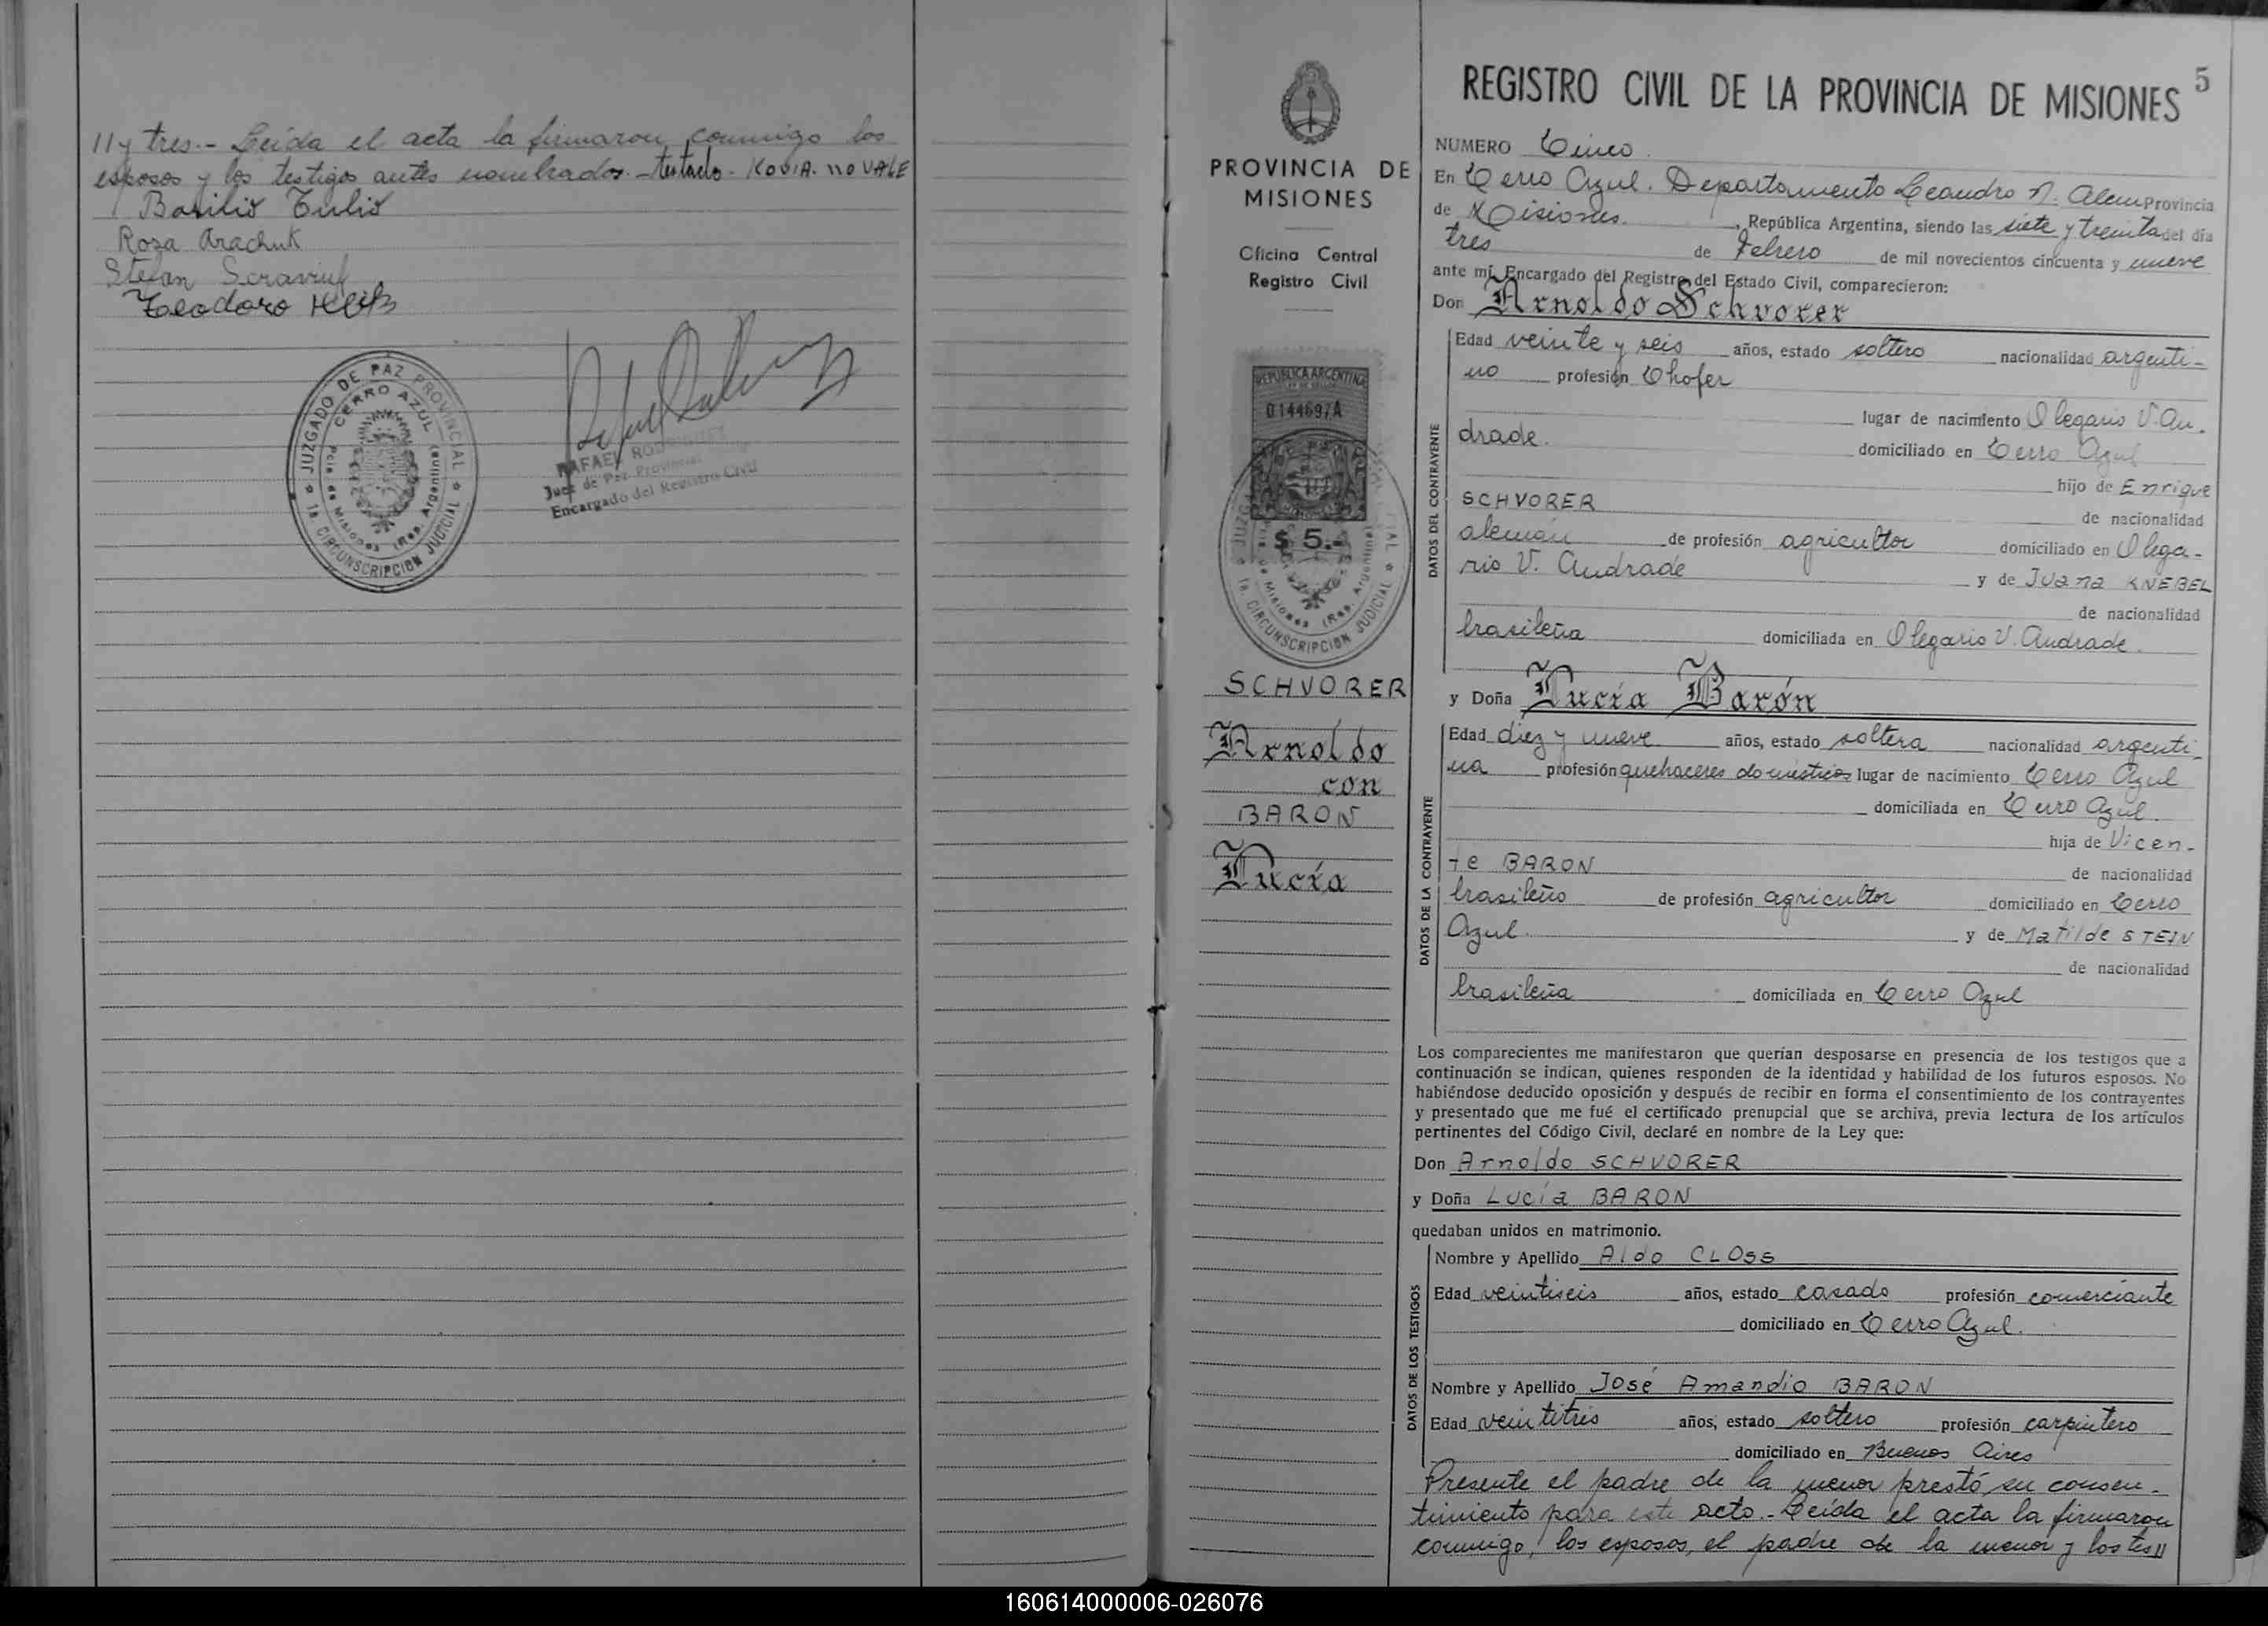 11 y tres.- Leída el acta la firmaron conmigo los
esposos y los testigos antes nombrados.- testado- KOVIA. no VALE
Basilio
Roza Arachuk
Stefan
Teodoro
JUZGADO DE PAZ PROVINCIAL
CERRO AZUL
Pcia. de Misiones (Rep. Argentina)
1a. CIRCUNSCRIPCION JUDICIAL
RAFAEL RODRIGUEZ
Juez de Paz Provincial
Encargado del Registro Civil
PROVINCIA DE
MISIONES
Oficina Central
Registro Civil
REPUBLICA ARGENTINA
0144697A
$ 5.-
1a. CIRCUNSCRIPCION JUDICIAL
SCHVORER
Arnoldo
con
BARON
Lucía
5
REGISTRO CIVIL DE LA PROVINCIA DE MISIONES
NUMERO Cinco
En Cerro Azul. Departamento Leandro N. Alem Provincia
de Misiones. , República Argentina, siendo las siete y treinta del día
tres de Febrero de mil novecientos cincuenta y nueve
ante mí, Encargado del Registro del Estado Civil, comparecieron:
Don Arnoldo Schvorer
DATOS DEL CONTRAYENTE
Edad veinte y seis años, estado soltero nacionalidad argenti-
no profesión Chofer
lugar de nacimiento Olegario V. An.
drade. domiciliado en Cerro Azul
hijo de Enrique
SCHVORER de nacionalidad
alemán de profesión agricultor domiciliado en Olega-
rio V. Andrade y de Juana KNEBEL
de nacionalidad
brasileña domiciliada en Olegario V. Andrade.
y Doña Lucía Barón
DATOS DE LA CONTRAYENTE
Edad diez y nueve años, estado soltera nacionalidad argenti-
na profesión quehaceres domésticos lugar de nacimiento Cerro Azul
domiciliada en Cerro Azul.
hija de Vicen-
te BARON de nacionalidad
brasileño de profesión agricultor domiciliado en Cerro
Azul. y de Matilde STEIN
de nacionalidad
brasileña domiciliada en Cerro Azul
Los comparecientes me manifestaron que querían desposarse en presencia de los testigos que a
continuación se indican, quienes responden de la identidad y habilidad de los futuros esposos. No
habiéndose deducido oposición y después de recibir en forma el consentimiento de los contrayentes
y presentado que me fué el certificado prenupcial que se archiva, previa lectura de los artículos
pertinentes del Código Civil, declaré en nombre de la Ley que:
Don Arnoldo SCHVORER
y Doña Lucía BARON
quedaban unidos en matrimonio.
DATOS DE LOS TESTIGOS
Nombre y Apellido Aldo CLOSS
Edad veintiseis años, estado casado profesión comerciante
domiciliado en Cerro Azul.
Nombre y Apellido José Amandio BARON
Edad veintitrés años, estado soltero profesión carpintero
domiciliado en Buenos Aires
Presente el padre de la menor prestó su consen-
timiento para este acto.- Leída el acta la firmaron
conmigo, los esposos, el padre de la menor y los tes 11
160614000006-026076